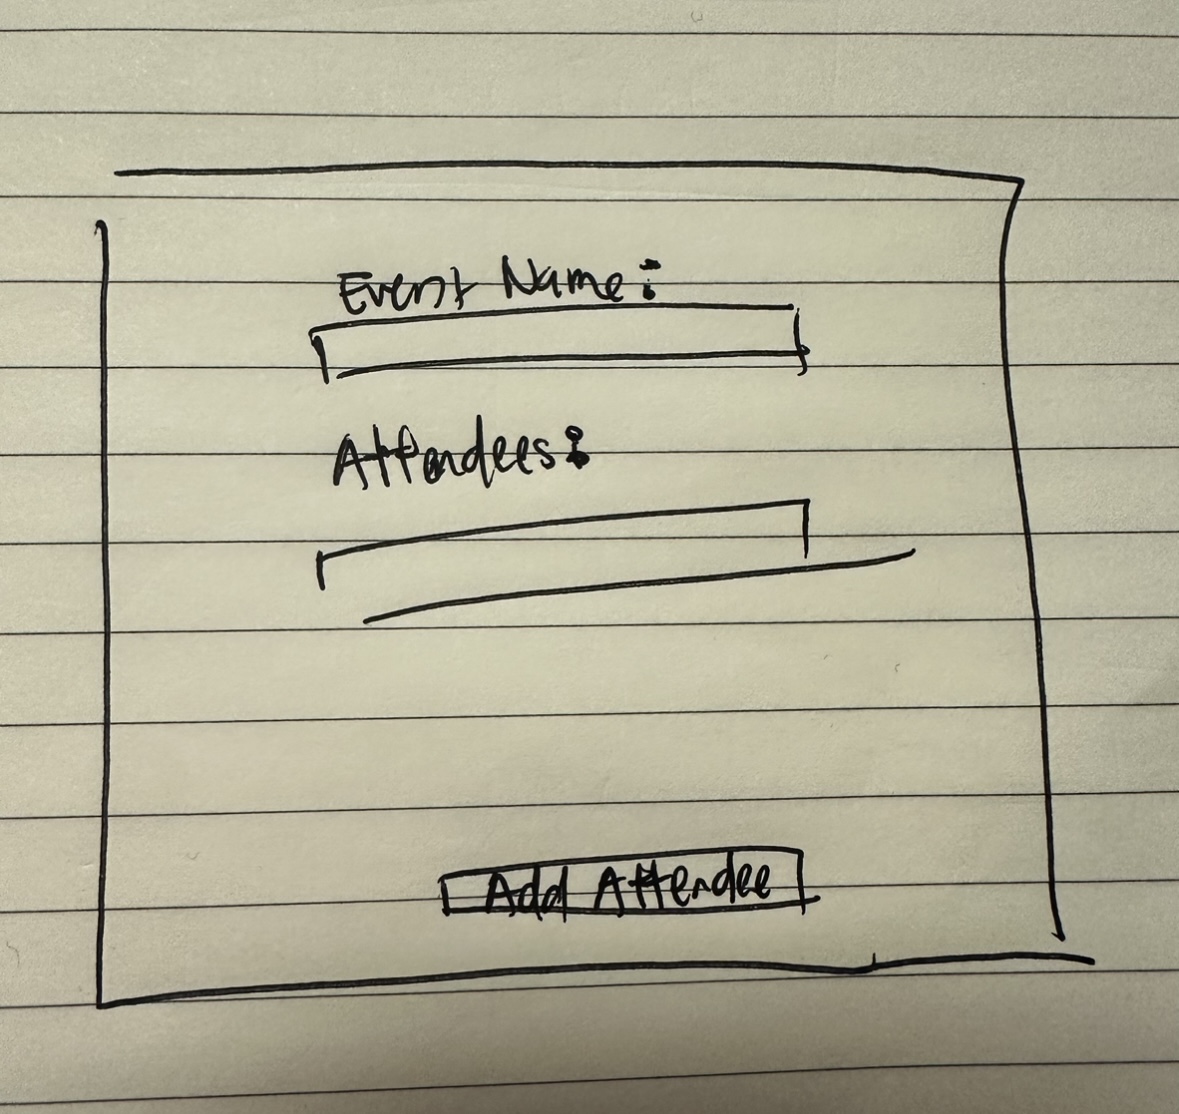 Event Name:
Attendees:
Add Attendee